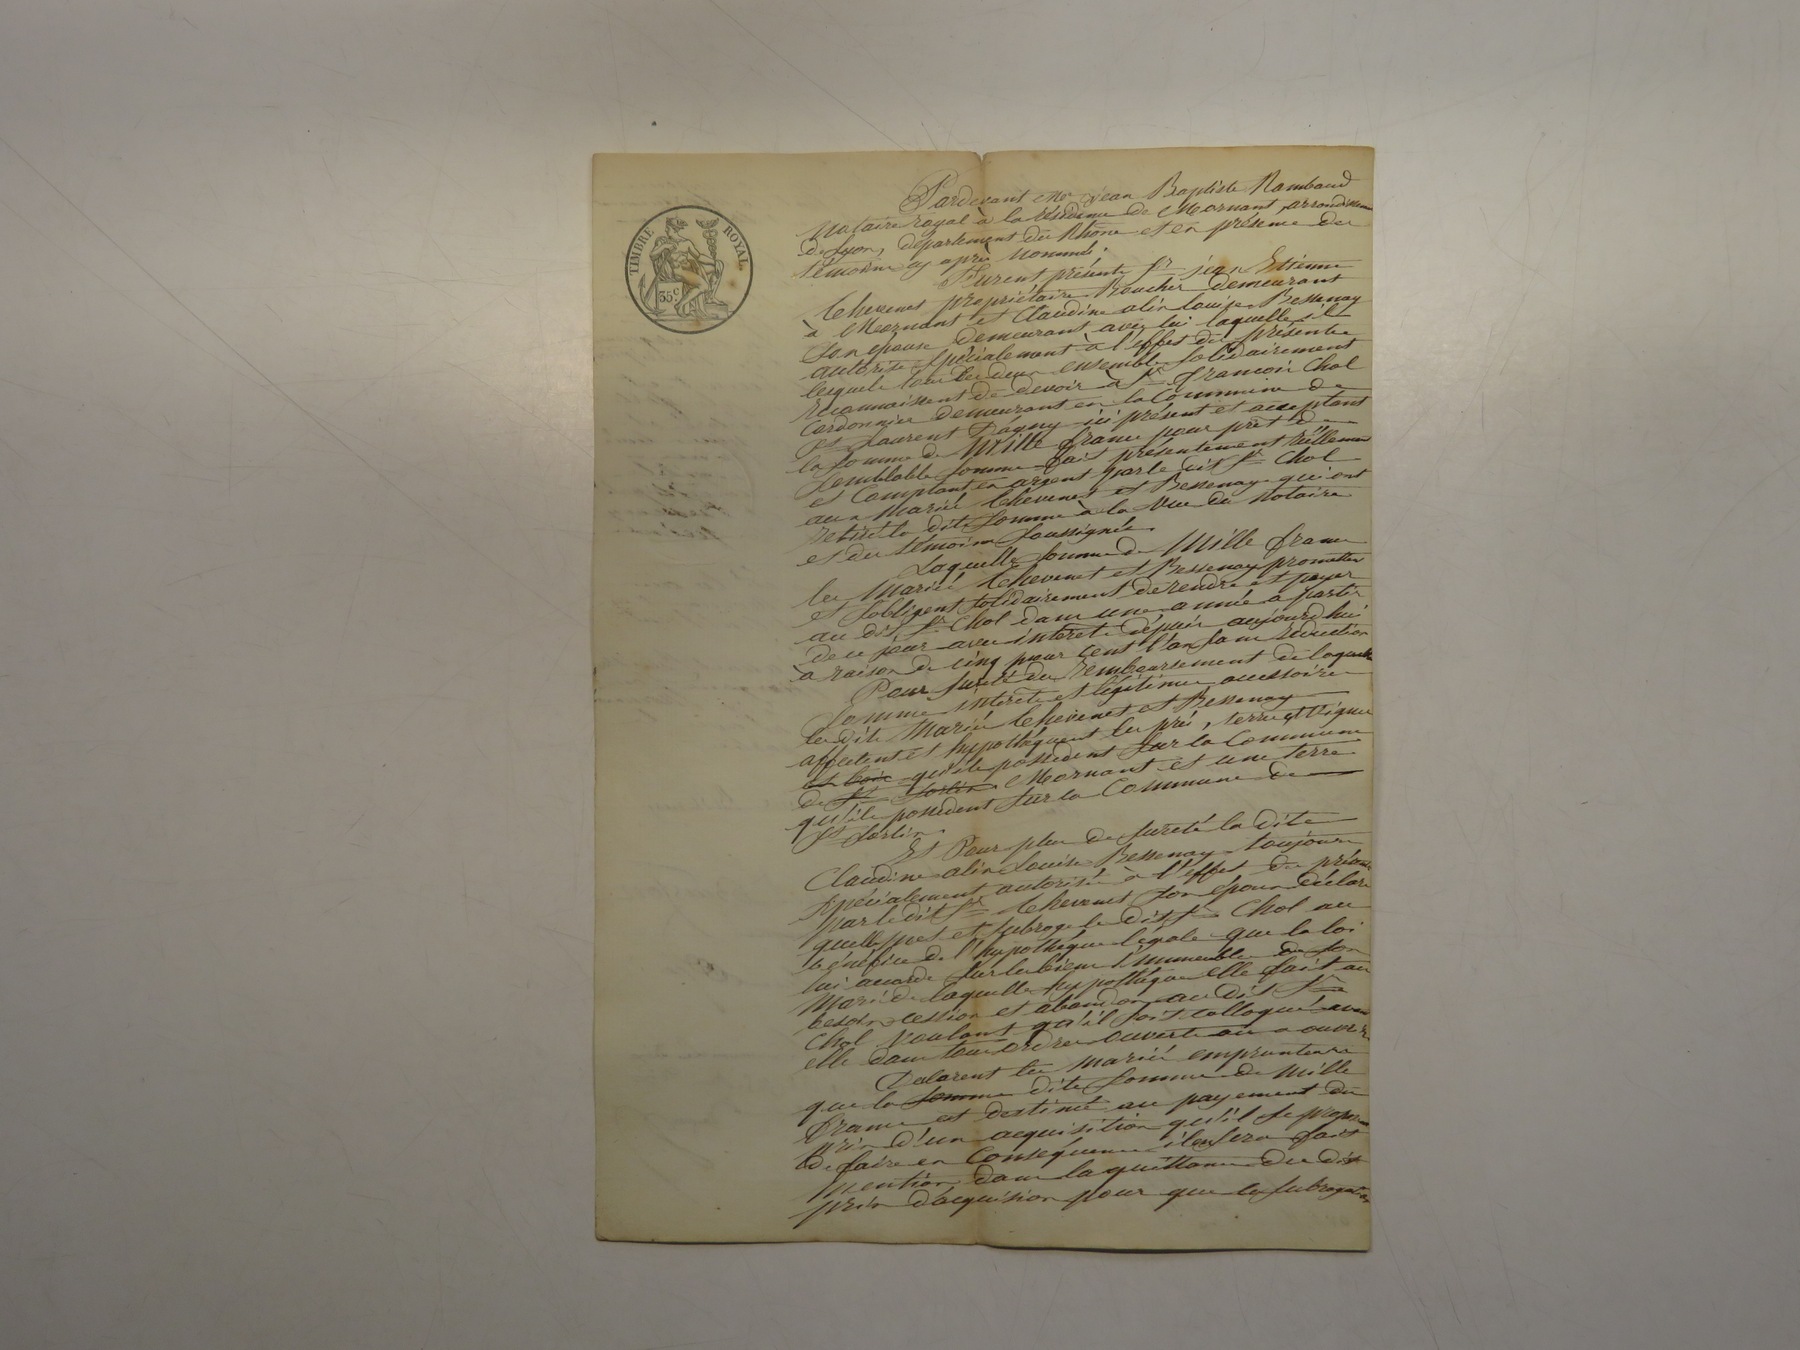 TIMBRE ROYAL
35c
Pardevant Me jean Baptiste Rambaud
Notaire royal à la résidence de Mornant, arrondissement
de Lyon, département du Rhône et en présence des
témoins cy après nommés.
Furent présents Sr jean Etienne
Chevenet propriétaire Boucher demeurant
à Mornant et Claudine aliés louise Bessenay
son epouse demeurant avec lui laquelle il
autorise spécialement à l'effet des présentes
lesquels tous les deux ensemble solidairement
reconnaissent de devoir à Sr françois Chol
Cordonnier demeurant en la Commune de
St Laurent Dagny ici présent et acceptant
la somme de Mille francs pour prêt de
semblable somme fait présentement réellement
et Comptant en argent par le dit Sr Chol
aux Mariés Chevenet et Bessenay qui ont
retiré la dite somme à la vue du notaire
et des témoins soussignés.
Laquelle somme de Mille francs
les Mariés Chevenet et Bessenay promettent
et s'obligent solidairement de rendre et payer
au dit Sr Chol dans une année à partir
de ce jour avec intérêts dépuis aujourd'hui
à raison de cinq pour cent l'an sans réduction
Pour sureté du remboursement de laquelle
somme intérêts et légitimes accessoires
les dits Mariés Chevenet et Bessenay
affectent et hypothéquent les prés, terres et vignes
et bois qu'ils possedent sur la Commune
de St Sorlin Mornant et une terre
qu'ils possedent sur la Commune de
St Sorlin.
Et Pour plus de sureté la dite
Claudine aliés louise Bessenay toujours
spécialement autorisée à l'effet des présentes
par le dit Sr Chevenet son époux déclare
quelle met et subroge le dit Sr Chol au
bénéfice de l'hypothèque légale que la loi
lui accorde sur les biens immeubles de son
Mari de laquelle hypothèque elle fait au
besoin cession et abandon au dit Sr
Chol voulant qu'il soit colloqué avant
elle dans tous ordres ouverts ou a ouvrir.
Dalarent les mariés emprunteurs
que la somme dite somme de Mille
francs est destinée au payement du
prix d'un acquisition qu'il se propose
de faire en Conséquence il en sera fait
mention dans la quittance du dit
prix d'acquision pour que la subrogation